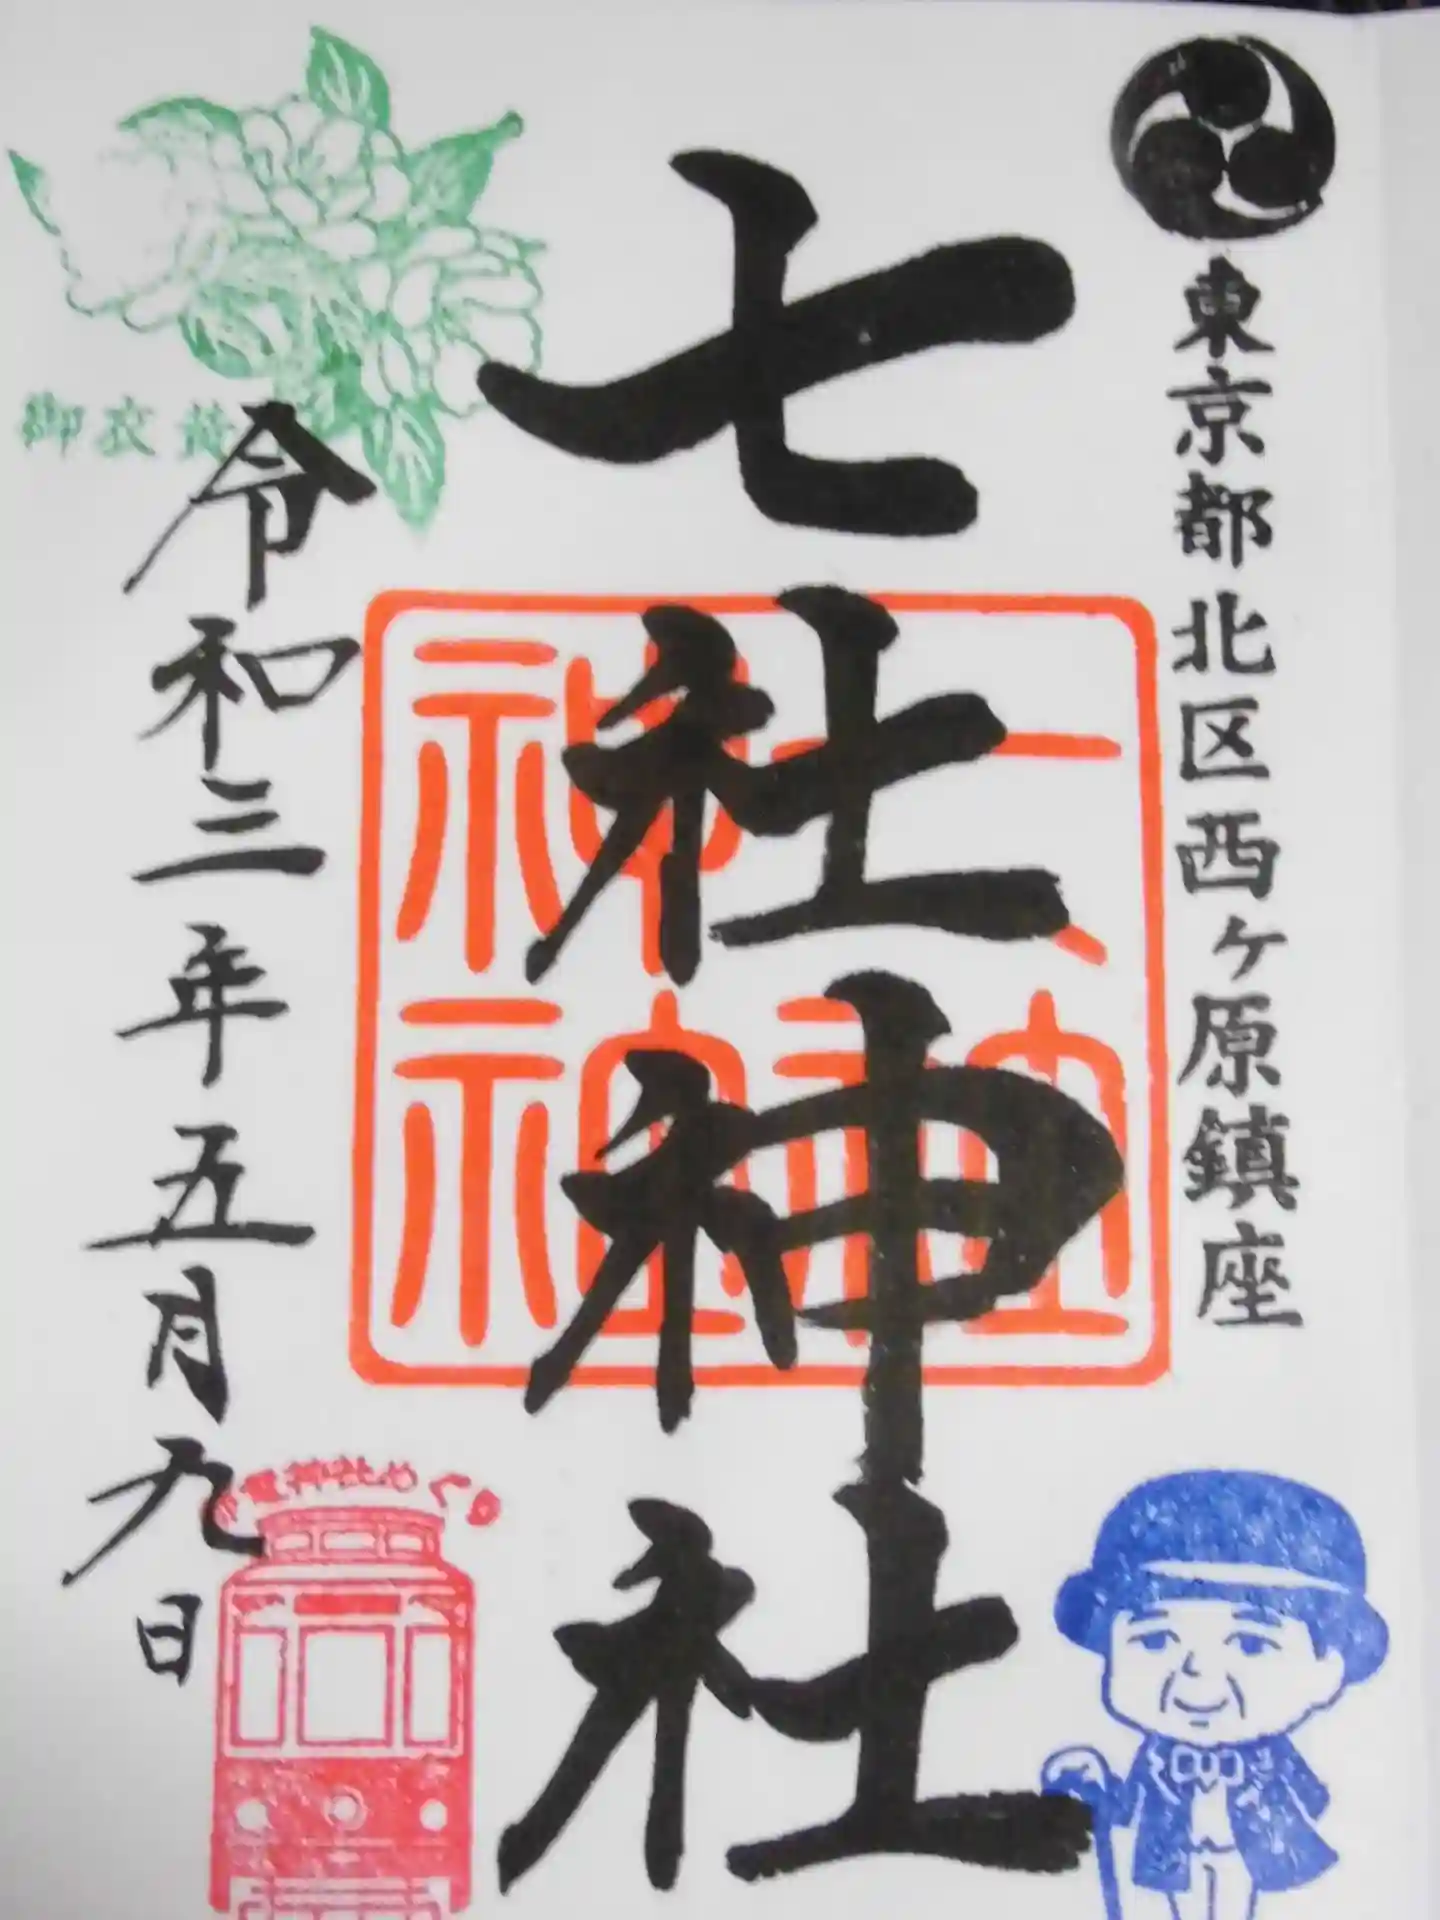 東京都北区西ヶ原鎮座
七社神社
七社神社
令和三年五月九日
御衣黄
都電神社めぐり